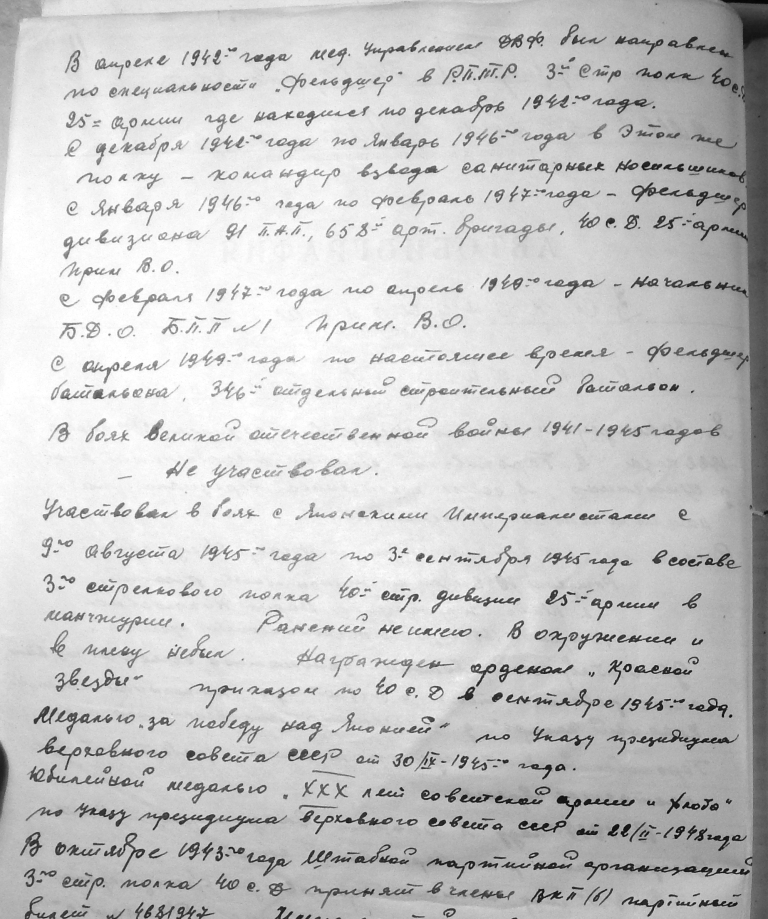 В апреле 1942-го года мед. Управлением ДВФ. был направлен
по специальности „Фельдшер" в Р.П.М.Р. 3й Стр полк 40 с.д.
25= армии где находился по декабрь 1942-го года.
С декабря 1942-го года по Январь 1946-го года в Этом же
полку – командир взвода санитарных носильщиков
С Января 1946-го года по Февраль 1947-го года – Фельдшер
дивизиона 91 П.А.П., 658й арт. бригады, 40 с.Д. 25-й армии
Прим В.О.
С Февраля 1947-го года по апрель 1949-го года – Начальник
Б.Д.О. Б.П.П №1 Прим. В.О.
С апреля 1949-го года по настоящее время – Фельдшер
батальона, 346й отдельный строительный батальон.
В боях Великой отечественной войны 1941-1945 годов
– Не участвовал.
Участвовал в боях с Японскими Империалистами с
9-го Августа 1945-го года по 3-е сентября 1945 года в составе
3-го стрелкового полка 40-й стр. дивизии 25-й армии в
манчжурии. Ранений не имею. В окружении и
в плену небыл. Награжден орденом „Красной
Звезды" приказом по 40 с.Д в сентябре 1945-го года.
Медалью „за победу над Японией" по Указу президиума
верховного совета СССР от 30/IX-1945-го года.
Юбилейной медалью „XXX лет советской армии и флота"
по указу президиума Верховного совета СССР от 22/II-1948 года
В октябре 1943-го года Штабной партийной организацией
3-го стр. полка 40 с.Д принят в члены ВКП(б) партийный
билет № 4681947